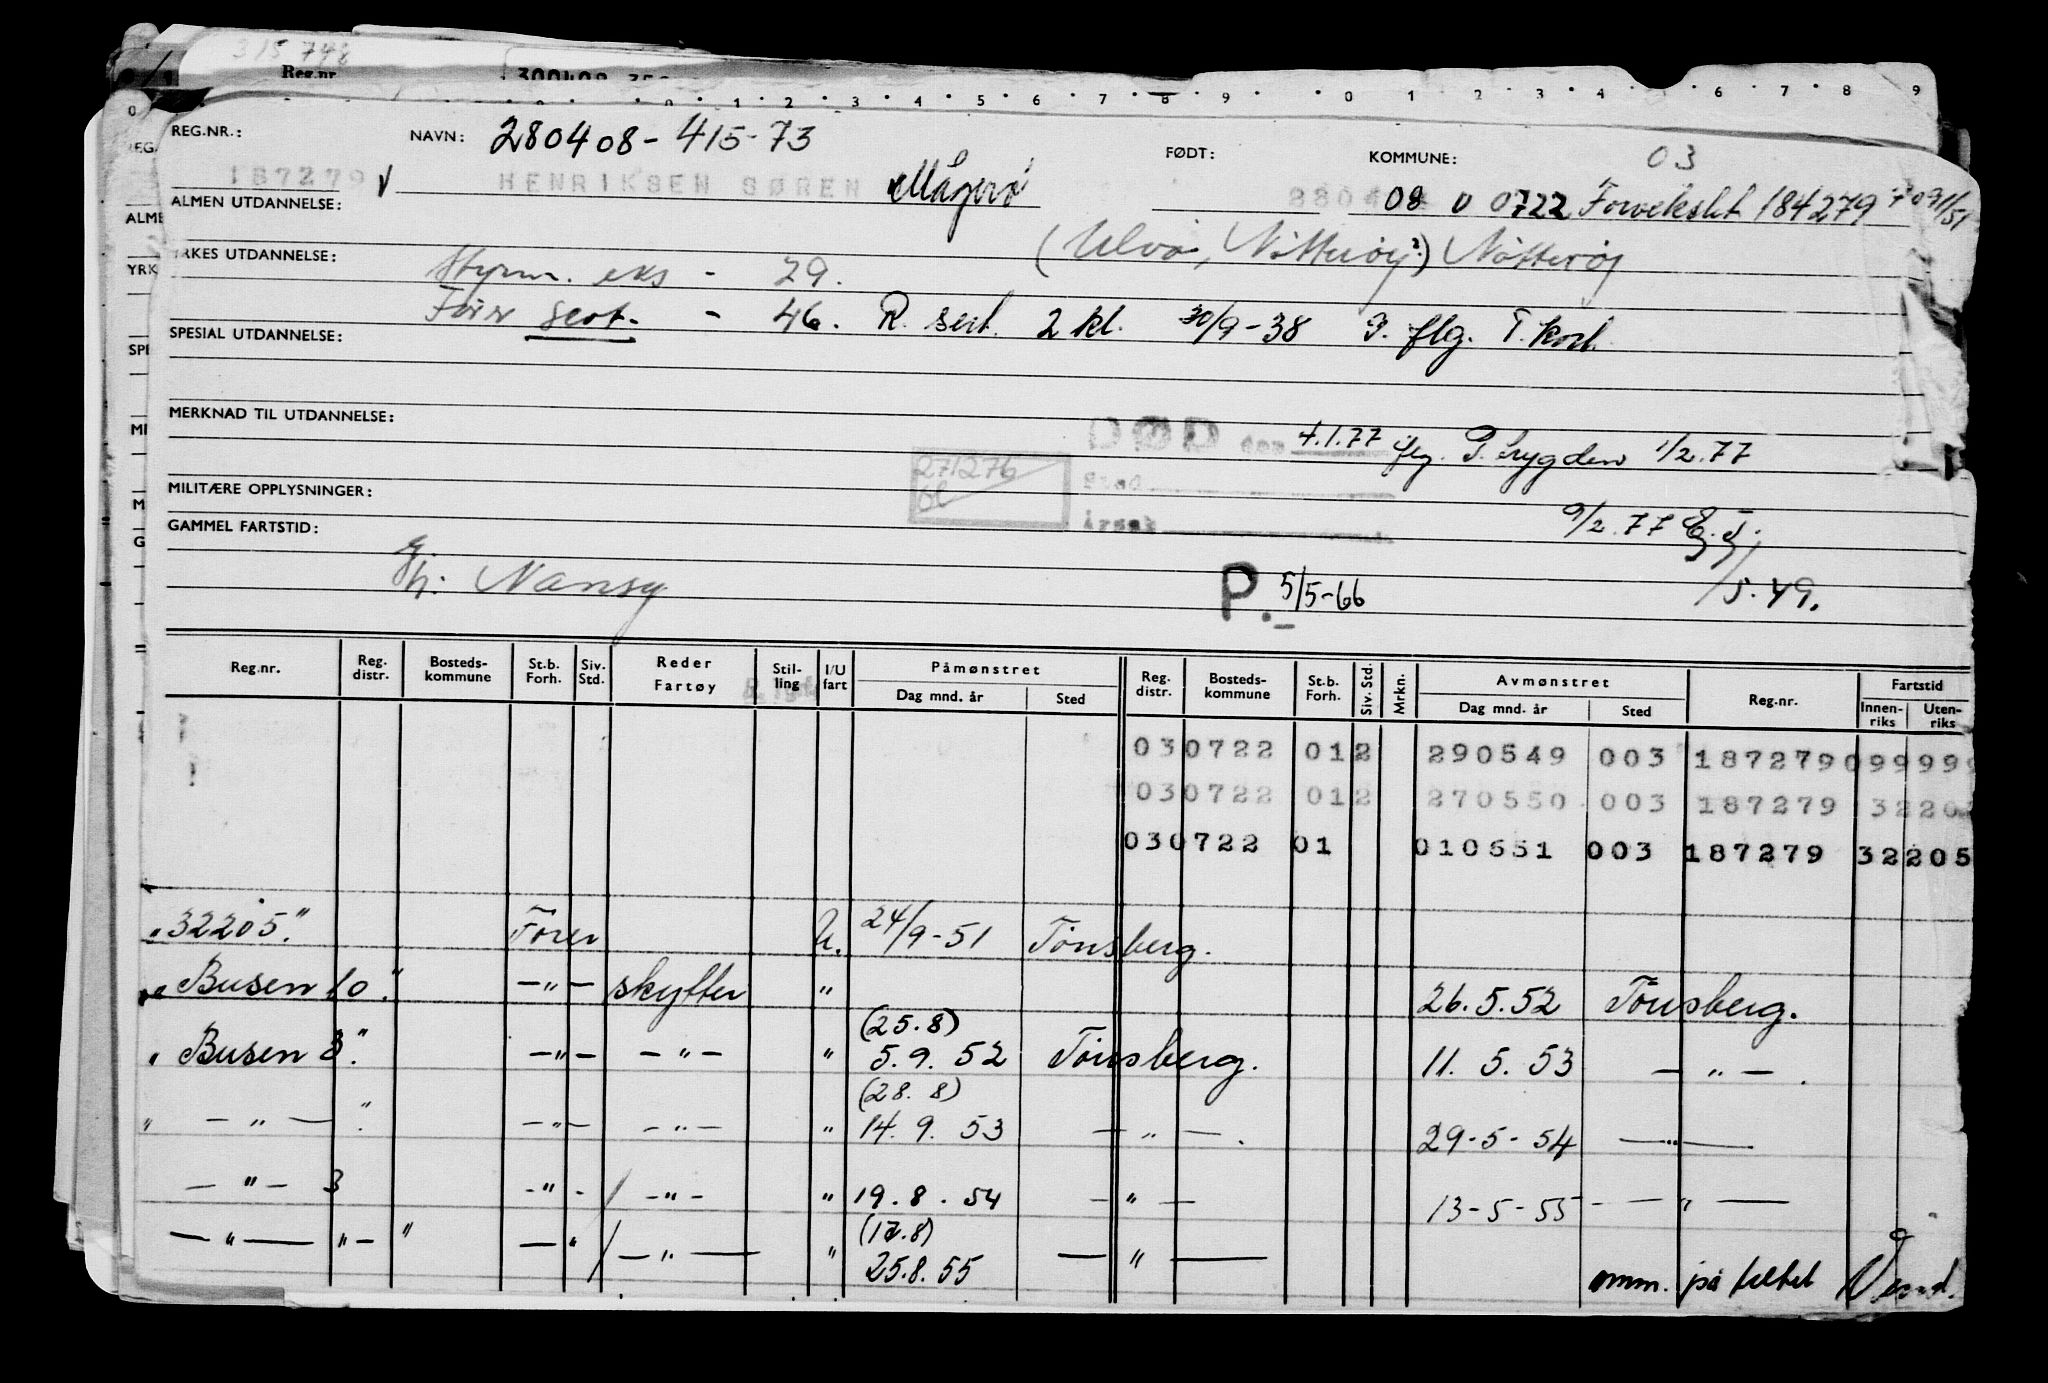 315 748
Reg.nr.
0 1 2 3 4 5 6 7 8 9 0 1 2 3 4 6 7 8 9
REG.NR.: NAVN: 280408-415-73 FØDT: KOMMUNE: 03
187279 HENRIKSEN SØREN Mågerø 08 0722 Forvekslet 184279
ALMEN UTDANNELSE:
(Ulvø, Nøtterøy?) Nøtterøy
YRKES UTDANNELSE: Styrm. eks - 29.
Fører sert. - 46. R. sert. 2 kl. 30/9-38 P. flg. T. kort.
SPESIAL UTDANNELSE:
MERKNAD TIL UTDANNELSE:
DØD den 4.1.77 flg. P. trygden 1/2.77
271276
Sted
MILITÆRE OPPLYSNINGER:
Årsak 9/2.77
GAMMEL FARTSTID:
Nansy P. 5/5-66 /5.49.
Reg.nr. Reg. distr. Bosteds-kommune St.b. Forh. Siv. Std. Reder Fartøy Stil-ling I/U fart Påmønstret Dag mnd. år Sted Reg. distr. Bosteds-kommune St.b. Forh. Siv. Std. Mrkn. Avmønstret Dag mnd. år Sted Reg.nr. Fartstid Innen-riks Uten-riks
030722 012 290549 003 187279 099999
030722 012 270550 003 187279 32205
030722 01 010651 003 187279 32205
"32205." Fører U. 24/9-51 Tønsberg.
"Busen 10." -"- skytter " 26.5.52 Tønsberg.
(25.8)
"Busen 8." -"- -"- " 5.9.52 Tønsberg. 11.5.53 -"-.
(28.8)
" -"- ". -"- -"- " 14.9.53 -"-. 29-5-54 -"-
-"- 3 -"- / -"- " 19.8.54 -"- 13-5-55 -"-
(17.8)
-"- "- " -"- / -"- " 25.8.55 -"- omm. på feltet Vend.